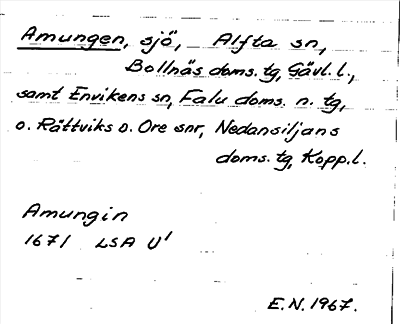 Amungen, sjö, Alfta sn,
Bollnäs doms. tg, Gävl. l.,
samt Envikens sn, Falu doms. n. tg,
o. Rättviks o. Ore snr, Nedansiljans
doms. tg, Kopp. l.
Amungin
1671 LSA U¹
E.N. 1967.